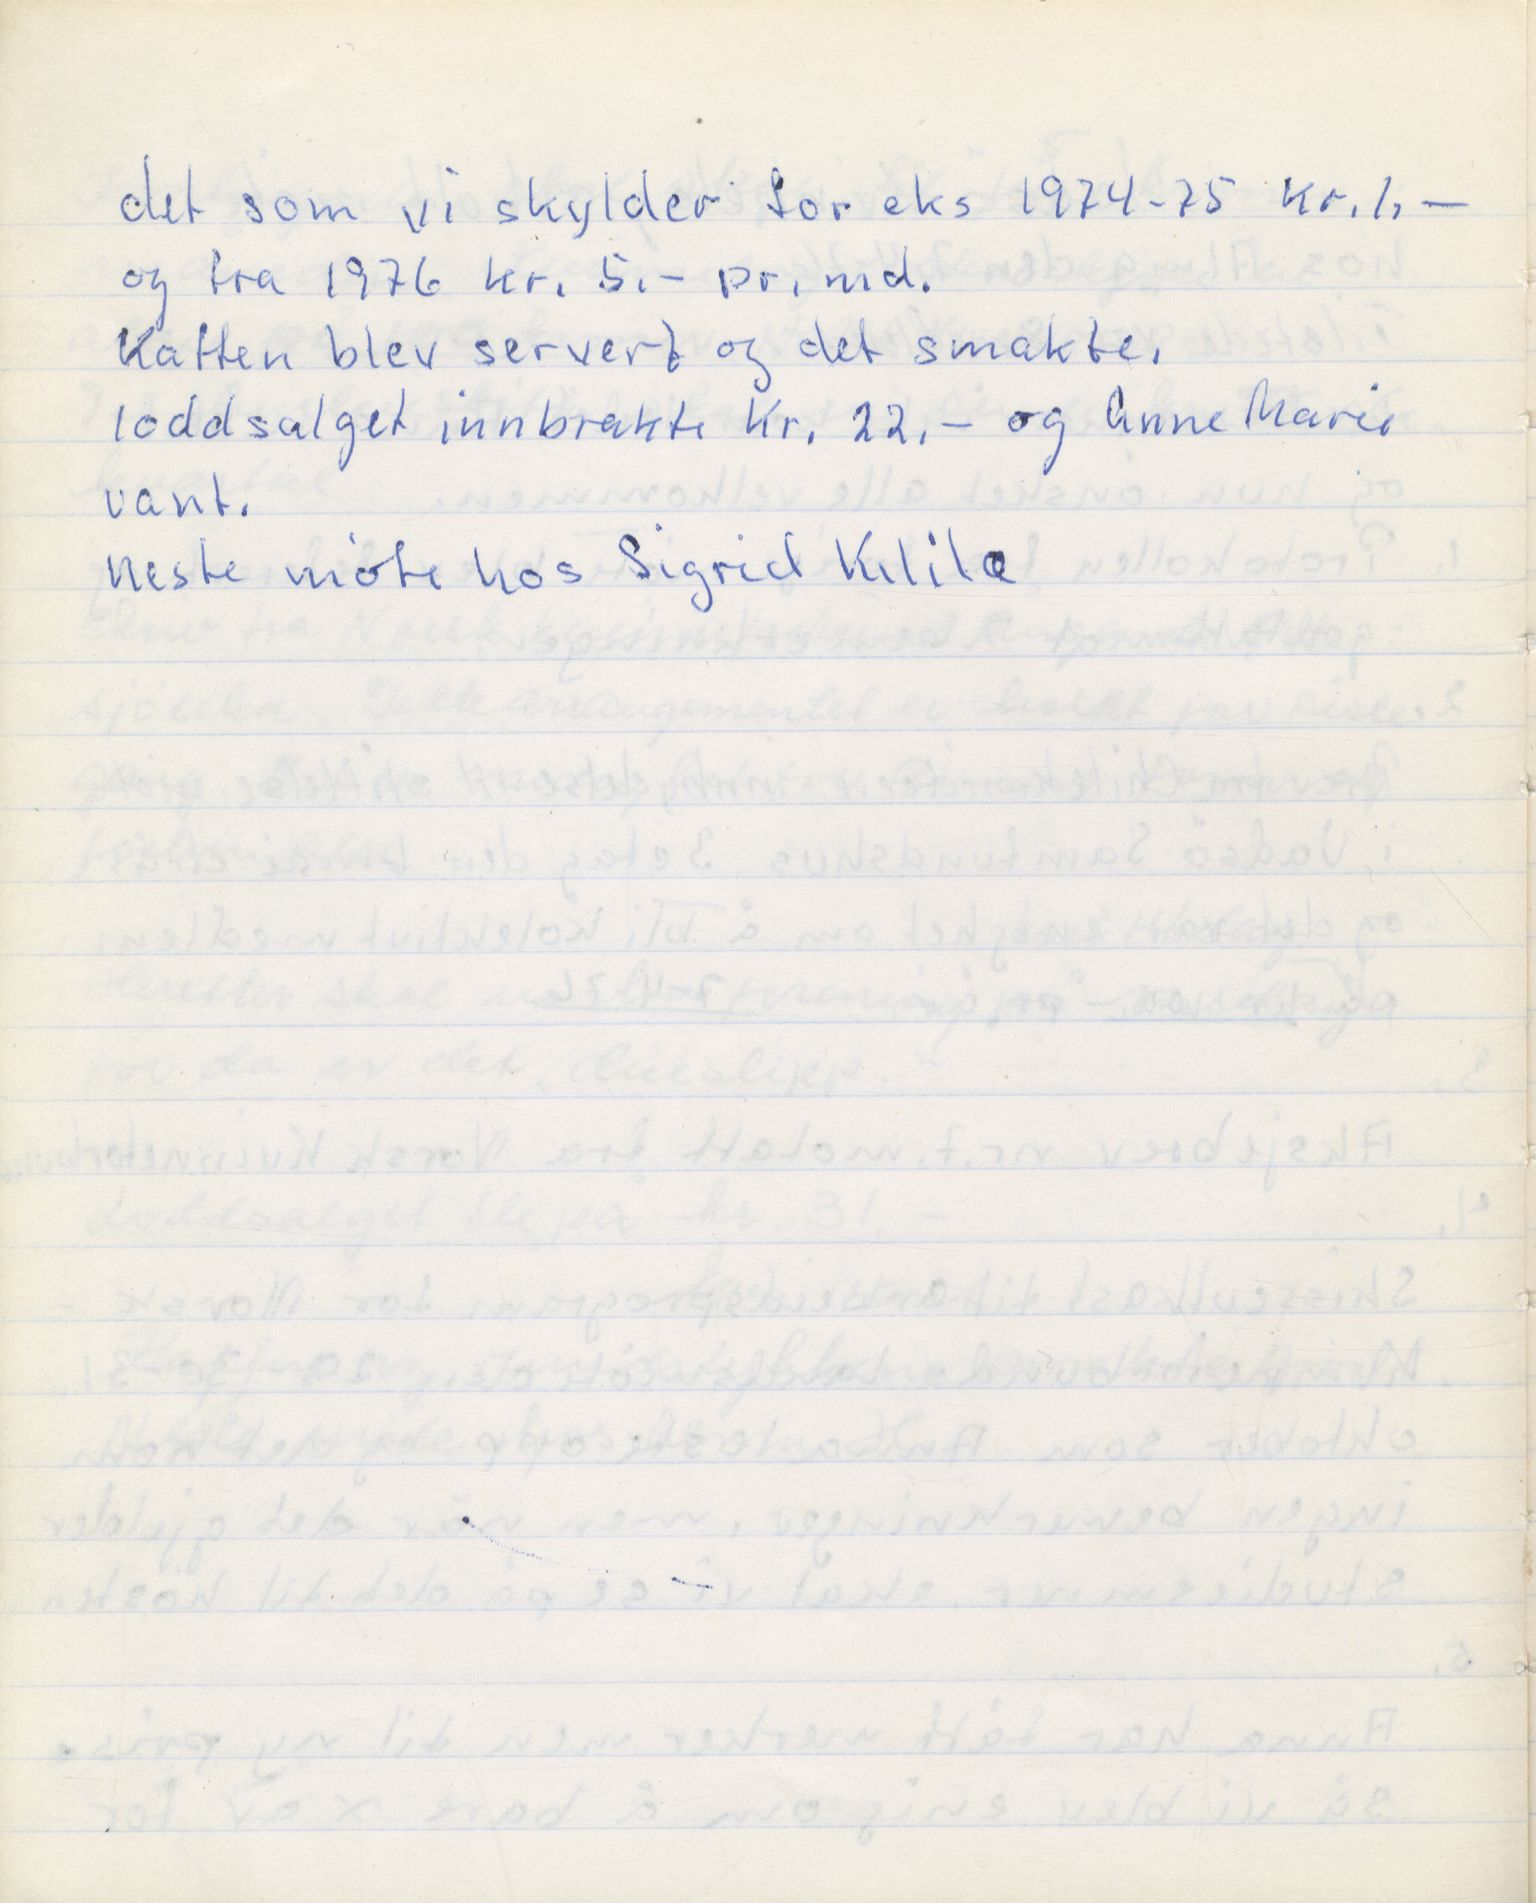 det som vi skylder for eks 1974-75 Kr. 1,-
og fra 1976 kr. 5.- pr. md.
Kaffen blev servert og det smakte.
loddsalget innbrakte Kr. 22.- og Anne Marie
vant.
Neste möte hos Sigrid